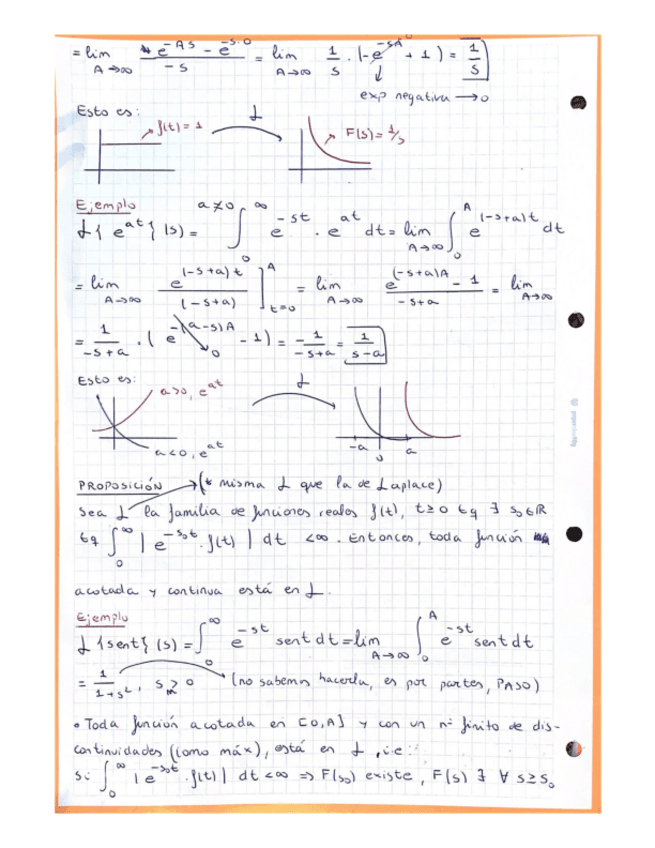 = lim A→∞ (e^-As - e^-s·0)/-s = lim A→∞ 1/s · (-e^-sA + 1) = 1/s
↓ 0
exp negativa → 0
Esto es:
f(t) = 1 L F(s) = 1/s
Ejemplo a≠0
L{e^at}(s) = ∫_0^∞ e^-st · e^at dt = lim A→∞ ∫_0^A e^(-s+a)t dt
= lim A→∞ e^(-s+a)t/(-s+a) ]_t=0^A = lim A→∞ (e^(-s+a)A - 1)/(-s+a) = lim A→∞
= 1/(-s+a) · (e^-(a-s)A → 0 - 1) = -1/(-s+a) = 1/(s-a)
Esto es:
a>0, e^at L
a<0, e^at -a 0 a
PROPOSICIÓN → (* misma L que la de Laplace)
Sea L la familia de funciones reales f(t), t≥0 tq ∃ s₀∈ℝ
tq ∫_0^∞ |e^-s₀t · f(t)| dt <∞. Entonces, toda función
acotada y continua está en L.
Ejemplo
L{sent}(s) = ∫_0^∞ e^-st sent dt = lim A→∞ ∫_0^A e^-st sent dt
= 1/(1+s²), s ≥ 0 (no sabemos hacerla, es por partes, PASO)
• Toda función acotada en [0,A] y con un nº finito de dis-
continuidades (como máx), está en L, i.e:
Si ∫_0^∞ |e^-s₀t · f(t)| dt <∞ ⇒ F(s₀) existe, F(s) ∃ ∀ s≥s₀